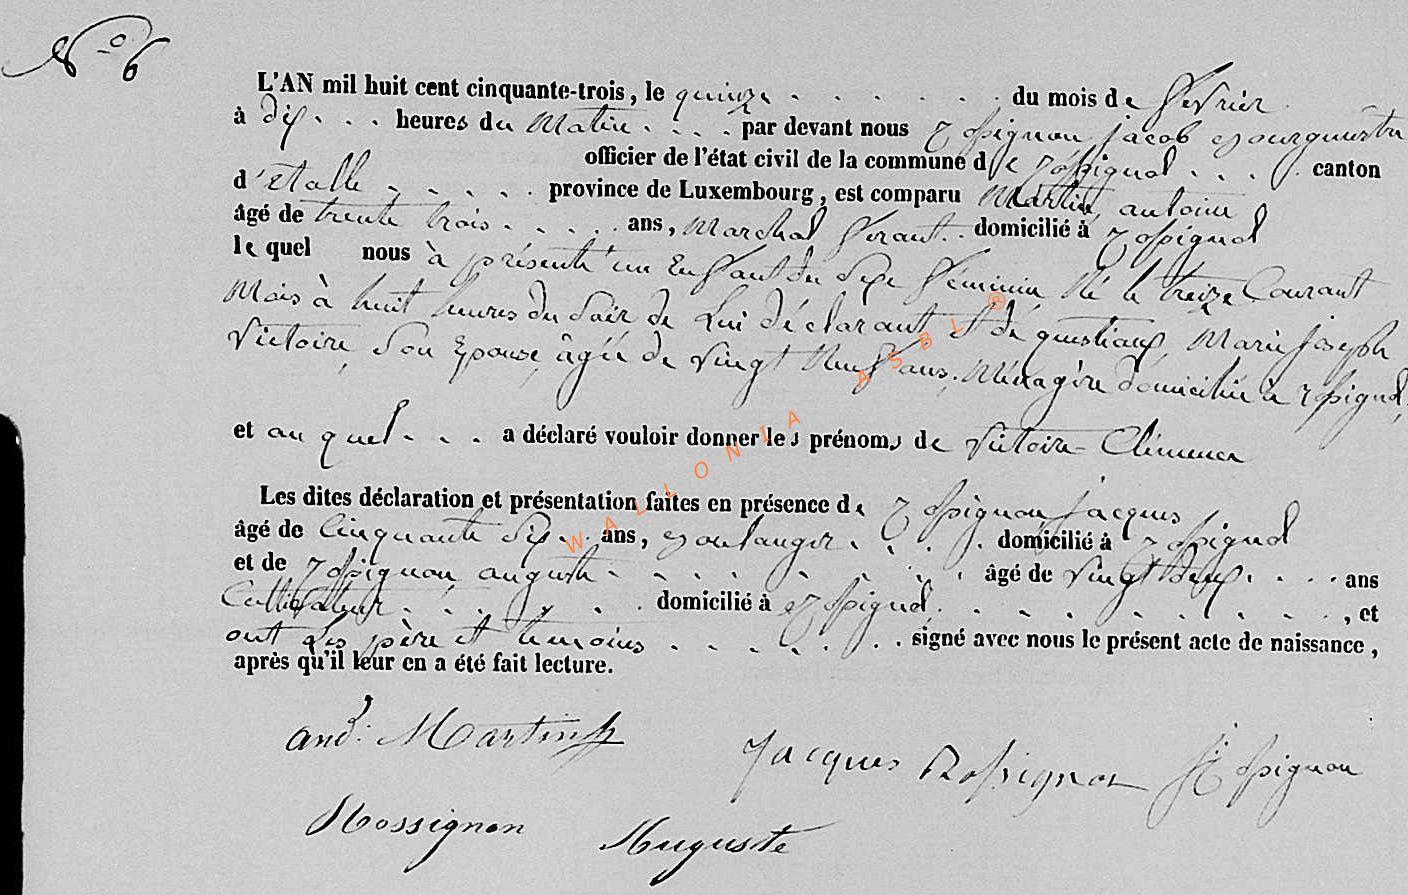 N° 6
L'AN mil huit cent cinquante-trois, le quinze . . . . . . du mois de fevrier
à dix . . . heures du Matin . . . . par devant nous rossignon jacob Bourguestre
officier de l'état civil de la commune de rossignol . . . . canton
d'étalle . . . . . province de Luxembourg, est comparu Martin, antoine
âgé de trente trois . . . . . ans, Marchal ferant . . domicilié à rossignol
lequel nous à présenté un Enfant du sexe féminin Né le treize Courant
Mois à huit heures du Soir de Lui déclarant et de questiaux, Marie joseph
Victoire, Son Epouse, âgée de vingt Neuf ans, Ménagère domiciliée à rossignol,
et au quel . . . a déclaré vouloir donner les prénoms de Victoire-Clémence
Les dites déclaration et présentation faites en présence de rossignon jacques
âgé de Cinquante Six . . ans, Boulanger . . . . domicilié à rossignol
et de rossignon auguste . . . . . . . . âgé de vingt deux . . . . ans
Cultivateur . . . . . . domicilié à rossignol . . . . . . . . , et
ont Les père et temoins . . . . . . . signé avec nous le présent acte de naissance,
après qu'il leur en a été fait lecture.
Martin
Jacques Rossignon
Rossignon
Rossignon Auguste
WALLONIA ASBL ®